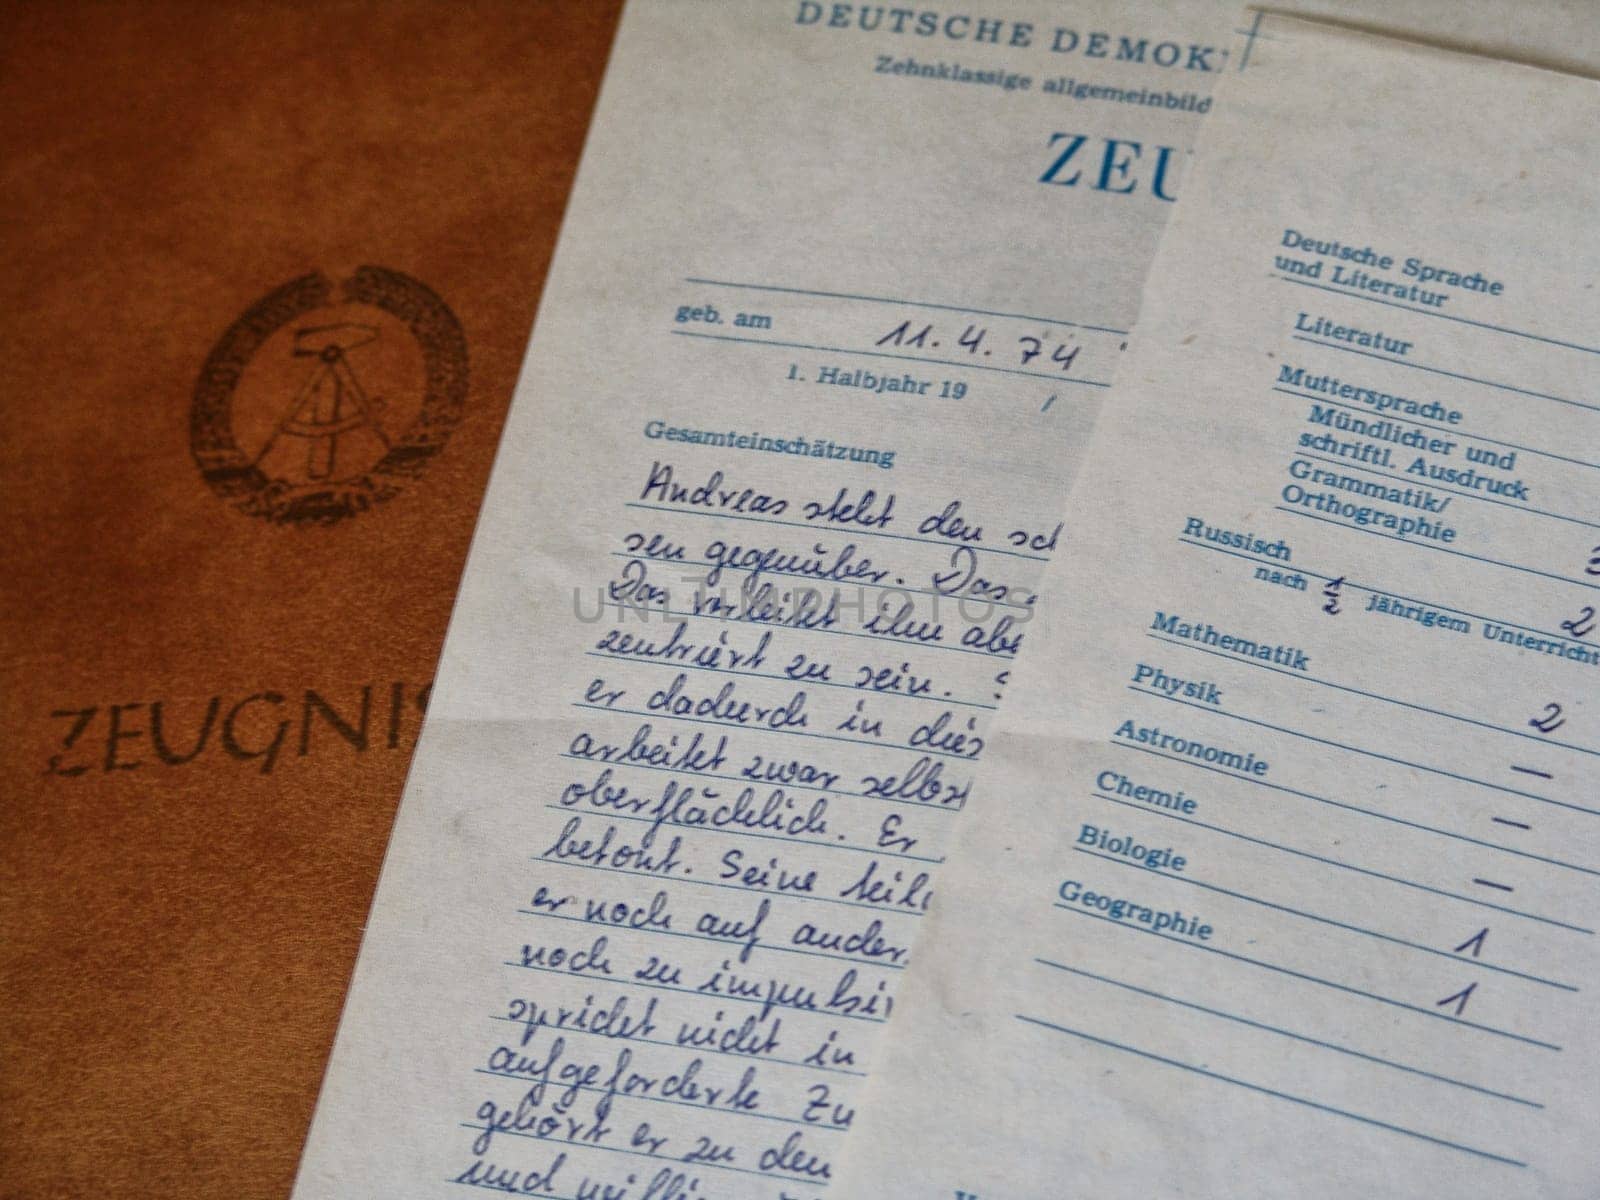 DEUTSCHE DEMOK
Zehnklassige allgemeinbild
ZEU
geb. am 11.4.74
1. Halbjahr 19 /
Gesamteinschätzung
Andreas steht den sch
sen gegenüber. Das
Das verleitet ihn abe
zentriert zu sein.
er dadurch in dies
arbeitet zwar selbst
oberflächlich. Er
betont. Seine teil
er noch auf ander
noch zu impulsi
spricht nicht in
aufgeforderte Zu
gehört er zu den
und
ZEUGNIS
Deutsche Sprache
und Literatur
Literatur
Muttersprache
Mündlicher und
schriftl. Ausdruck
Grammatik/
Orthographie
Russisch 2
nach 1/2 jährigem Unterricht
Mathematik 2
Physik —
Astronomie —
Chemie —
Biologie 1
Geographie 1
UNLIMPHOTOS